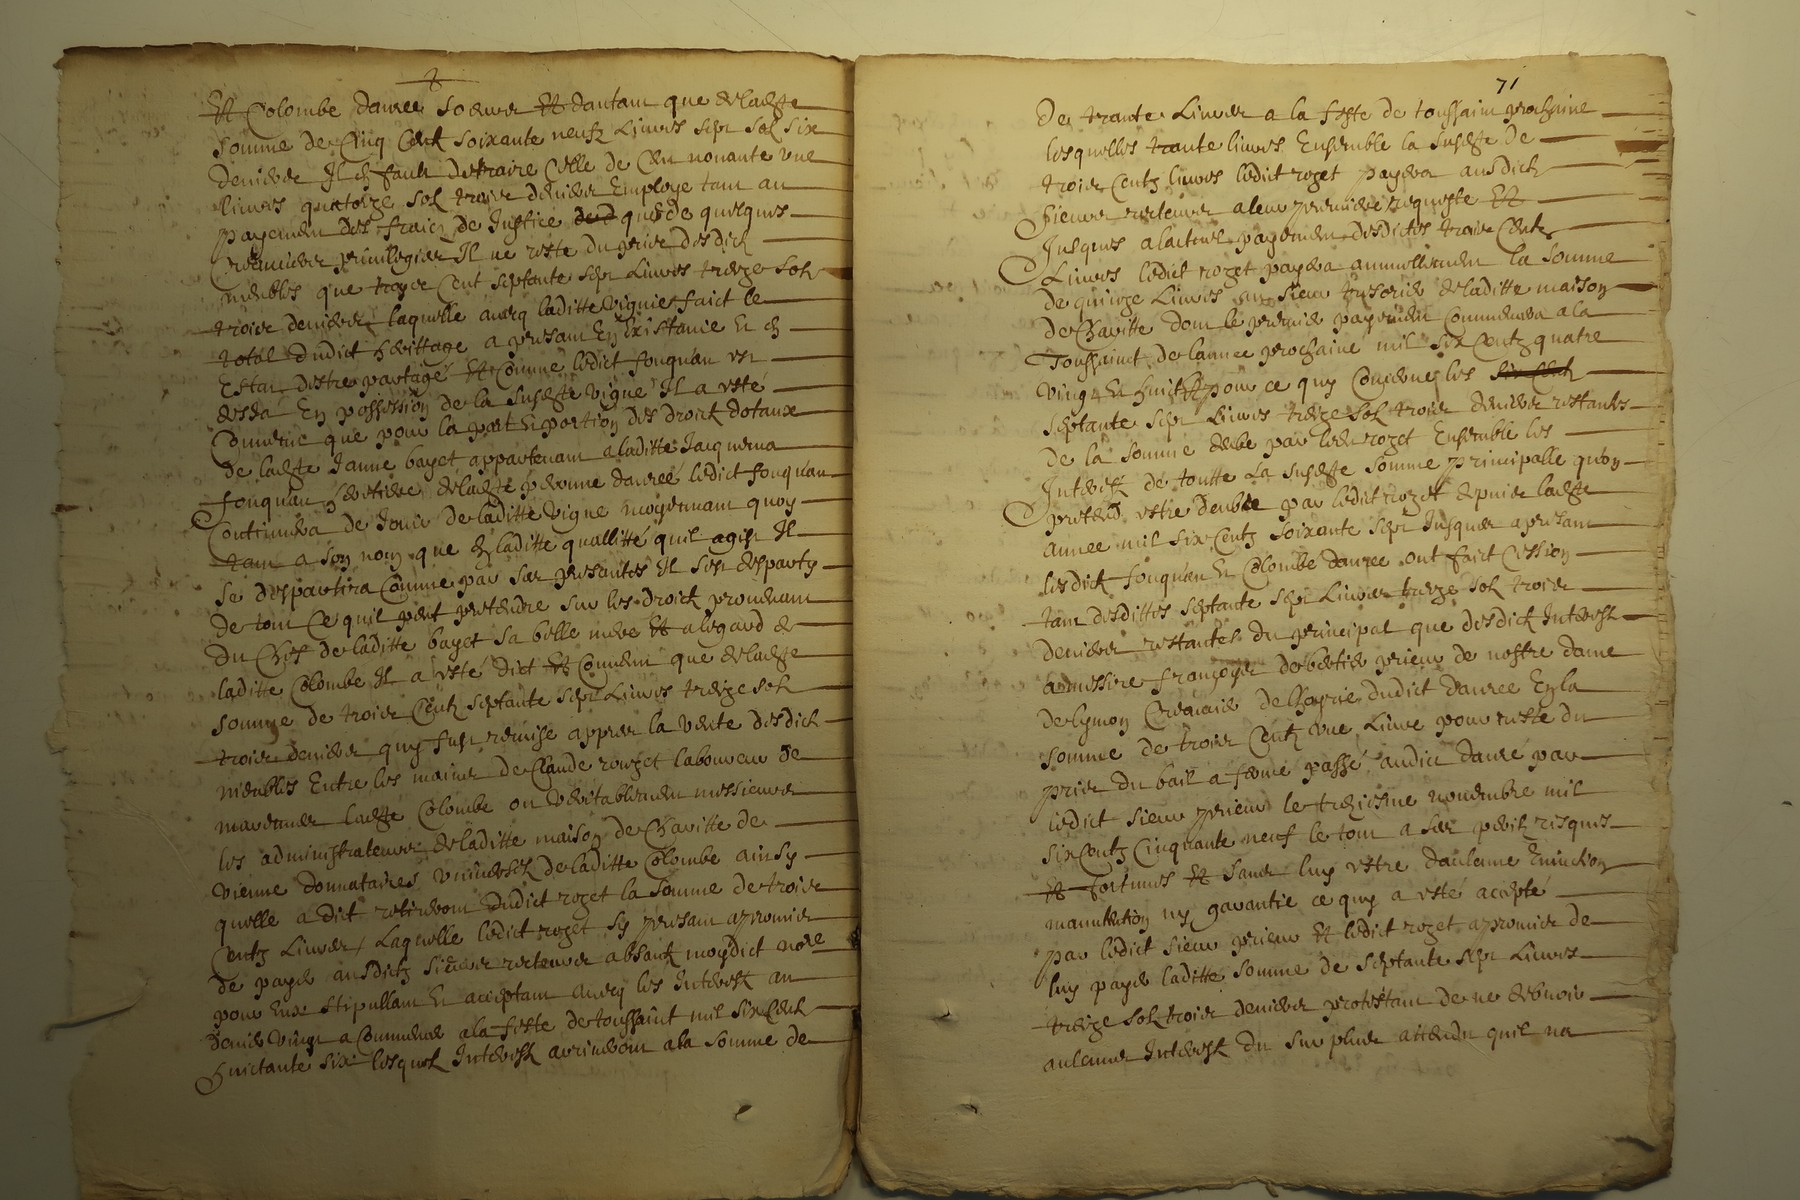 Et Colombe dauree soeurs Et dautam que de ladte
somme de Cinq Cent soixante neufz Liures sept solz six
deniers Il en fault detraire Celle de Cen nonante vne
liures quatorze solz trois deniers Employe tam au
payemen des fraiz de Justice que de quelques
Creanciers priuilegiez Il ne reste du prix desdick
meubles que trois Cent septante sept Liures treize solz
trois deniers laquelle aueq laditte vigne faict le
total dudict heritage a presam En Existance Et en
Estat destre partagé Et Comme ledict fouquan est
desja En possession de la susdte vigne Il a esté
Conuenu que pour la part Et portion des droick dotaux
de ladte Janne bayet appartenam a laditte Jacquema
fouquan heretiere de ladte peronne dauree ledict fouquan
Continuera de Jouir de laditte vigne moyennam quoy
tam a son nom que En laditte quallitté quil agist Il
se despartira Comme par ses presantes Il sest desparty
de tout Ce quil peut pretendre sur les droick prouenam
du Chef de laditte bayet sa belle mere Et a legard de
laditte Colombe Il a esté dict Et Conuenu que de ladte
somme de trois Centz septante sept Liures treize solz
trois deniers quy fust remise appres la vente desdick
meubles Entre les mains de Claude rouzet laboureur de
ladte Colombe ou veritablemen messieurs
les administrateurs de laditte maison de Charitte de
vienne donnataires vniuerselz de laditte Colombe ainsy
quelle a dict retireront dudict rozet la somme de trois
Centz Liures, Laquelle ledict rozet Sy presam a promis
de payer ausdictz sieurs recteurs absentz moydict nore
pour Eux stipullam Et acceptam aueq les Interestz au
denier vingt a Commencer a la feste de toussaint mil six Centz
huictante six lesquelz Interestz arriueront a la somme de
71
De trante Liures a la feste de toussaint prochaine
lesquelles trante liures Ensemble la susdte de
trois Centz liures ledict rozet payera ausdick
sieurs recteurs a leur premiere requeste Et
Jusques a lactuel payemen desdictes trois Centz
Liures ledict rozet payera annuellemen la somme
de quinze Liures au sieur tresorier de laditte maison
de Charitte dont le premier payemen Commencera a la
Toussainct de lannee prochaine mil six Centz quatre
vingt Et huict Et pour ce quy Concerne les six Centz
septante sept Liures treize solz trois deniers restants
de la somme deube par ledit rozet Ensemble les
Interestz de toutte La susdte somme principalle quon
pretend estre deube par ledict rozet depuis ladte
annee mil six Centz soixante sept Jusques a presam
lesdick fouquan Et Colombe dauree ont faict Cession
tam desdittes septante sept Liures treize solz trois
deniers restantes du principal que desdick Interestz
a messire françoys prieur de nostre dame
de lymon dudict dauree En la
somme de trois Centz vne Liure pour reste du
prix du bail a ferme passé audict dauré par
ledict sieur prieur le treziesme nouembre mil
six Centz Cinquante neuf le tout a ses perilz risques
Et fortunes Et sans luy estre daulcune Euiction
manutention ny garantie ce quy a esté accepté
par ledict sieur prieur Et ledict rozet a promis de
luy payer laditte somme de septante sept Liures
treize solz trois deniers protestam de ne debuoir
aulcuns Interestz du surplus attendu quil na